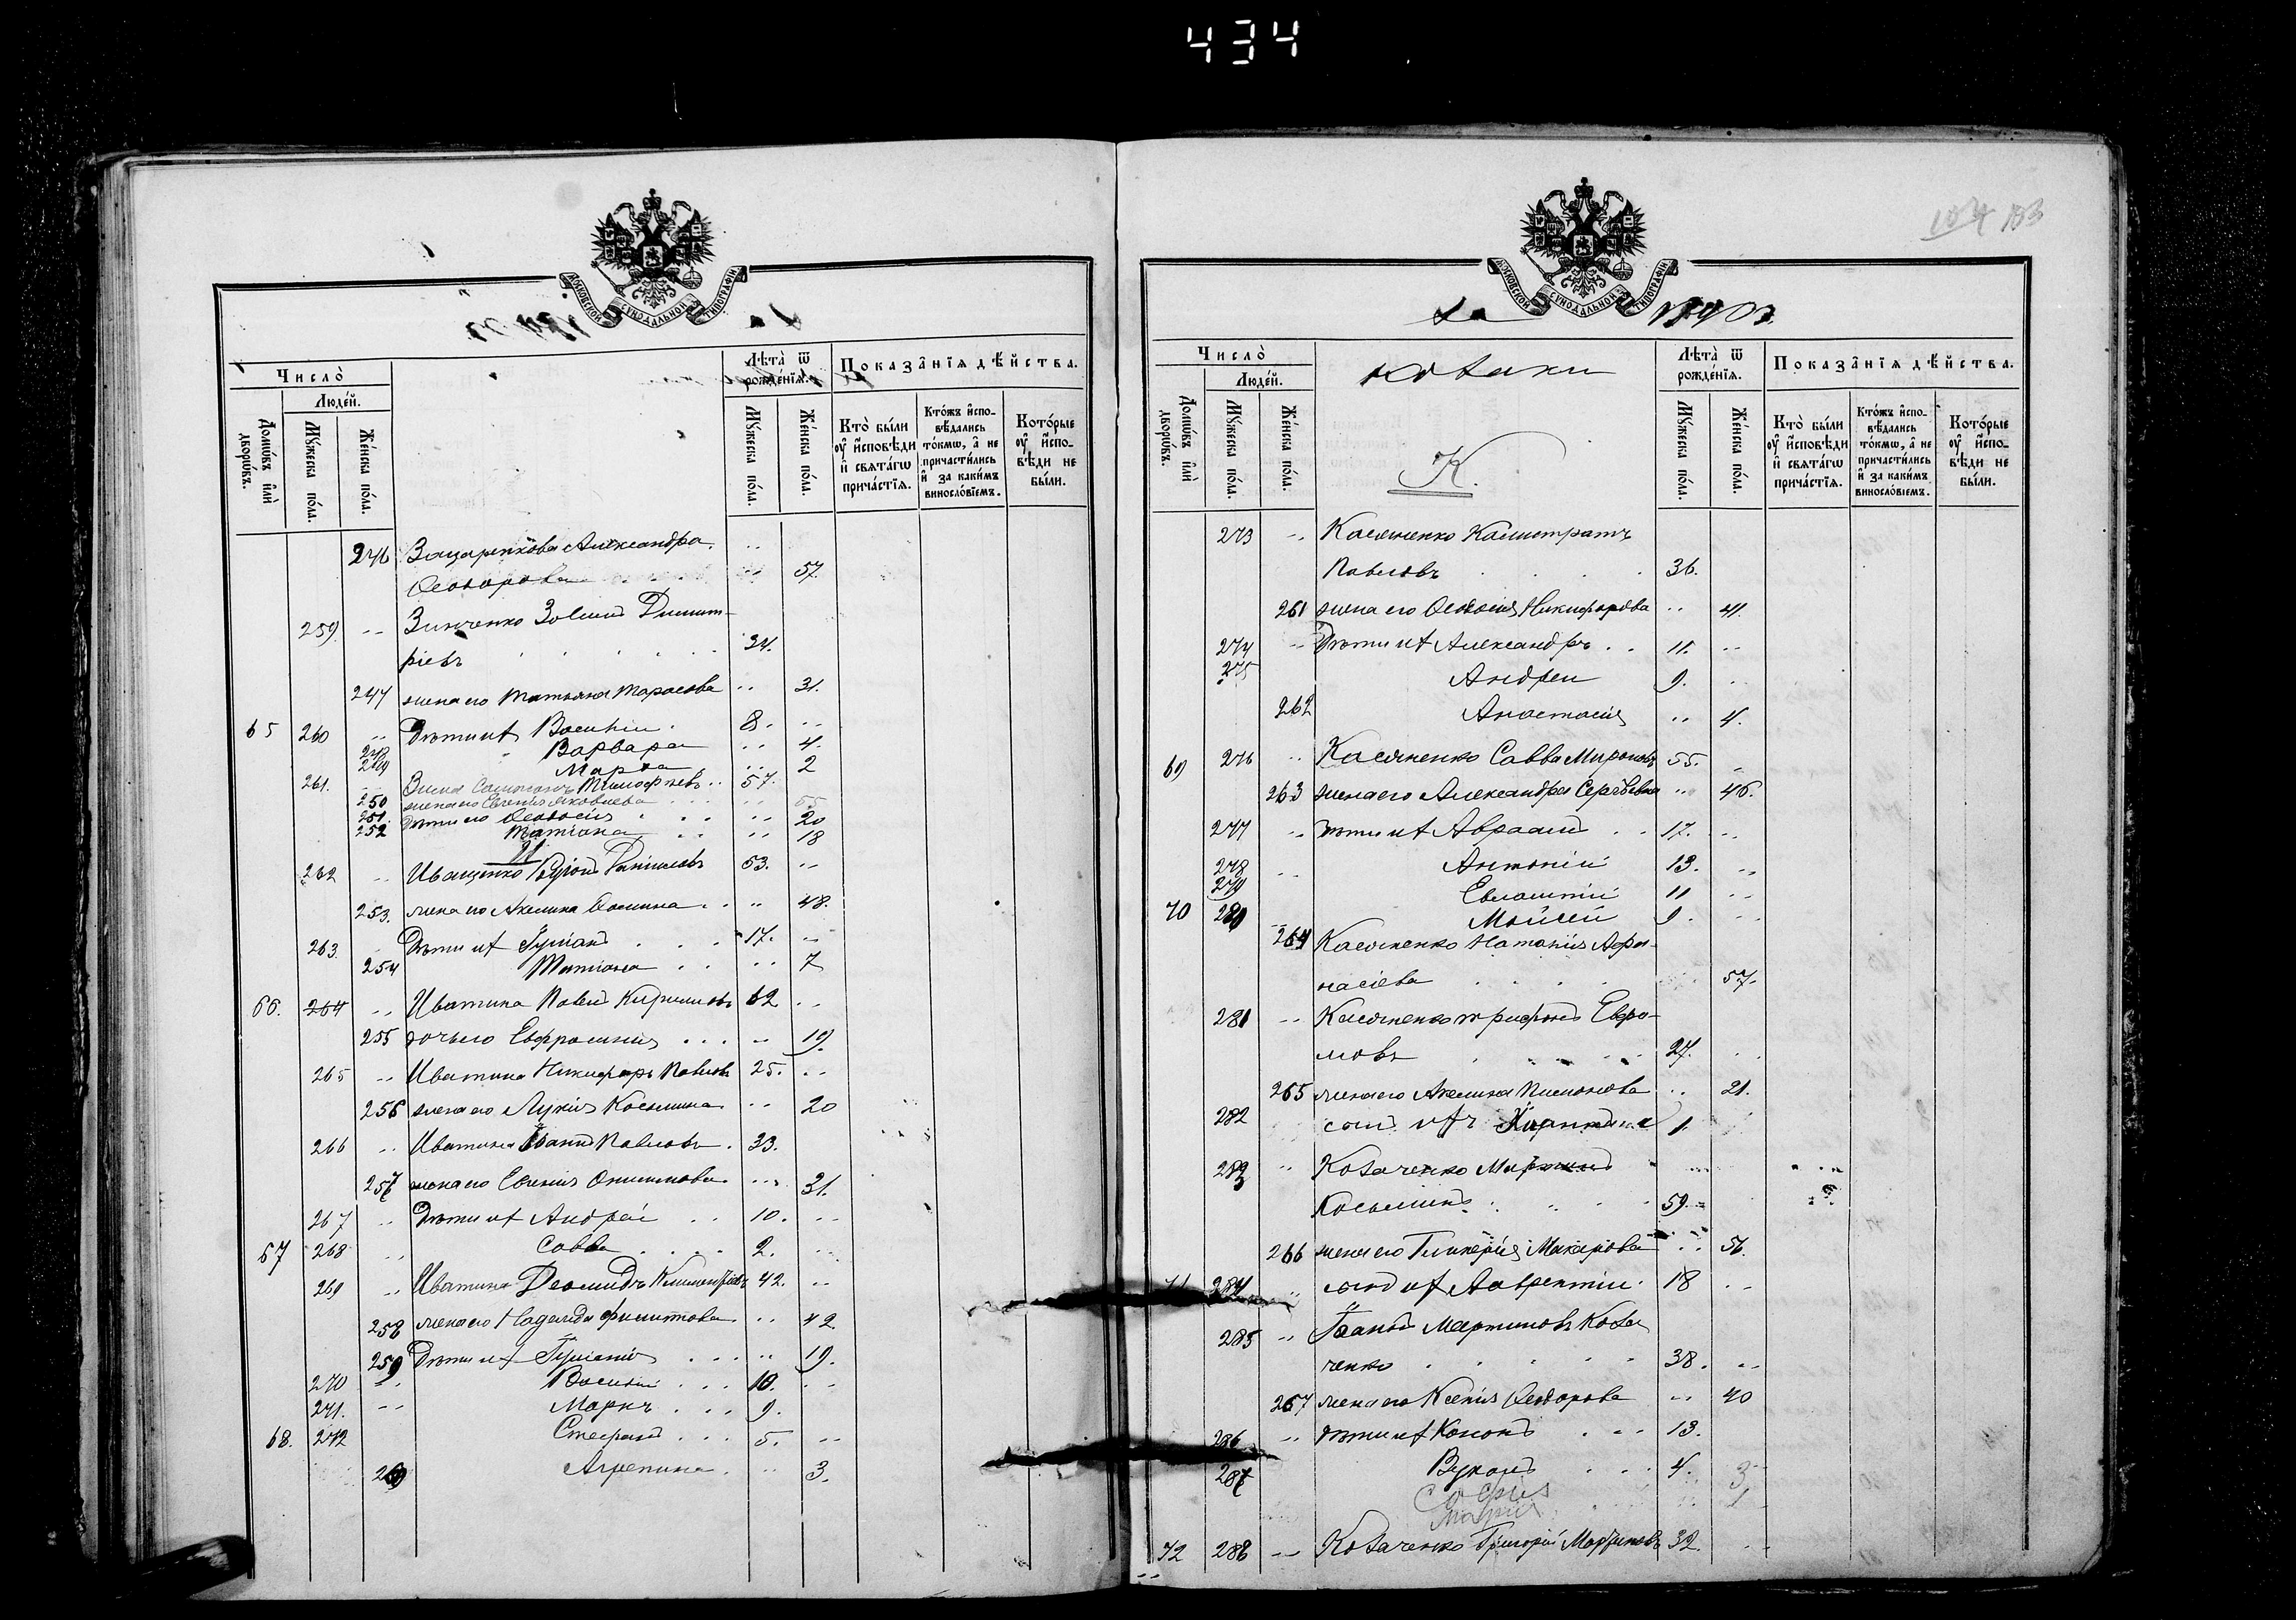 434
МОСКОВСКОЙ СѴНОДАЛЬНОЙ ТИПОГРАФІИ
Число̀
Люде́й.
Домѡ́въ и҆лѝ дворѡ́въ.
Мꙋ́жеска по́ла.
Же́нска по́ла.
Лѣта̀ ѿ рожде́нїѧ.
Мꙋ́жеска по́ла.
Же́нска по́ла.
Показа̂нїѧ дѣ́йства.
Кто̀ бы́ли оу҆ и҆́сповѣди и҆ свѧта́гѡ прича́стїѧ.
Кто́жъ и҆спо-вѣ́дались то́кмѡ, а҆ не причасти́лись и҆ за каки́мъ винослѡ́вїемъ.
Кото́рые оу҆ и҆́спо-вѣди не бы́ли.
246 Зацарепкова Александра
Ѳеодорова 57
259. Зинченко Зосимъ Димит-
ріевъ 34.
247 жена его Татьяна Тарасова 31.
65 260 Дѣти ихъ Василій 8.
248 Варвара 4.
249 Марѳа 2
261. Зима Тимофѣевъ 57.
250 жена его Евгенія Яковлева 55
251. дѣти его Ѳеодосія 20
252 Татіана 18
И
262 Иващенко Родіонъ Даніиловъ 53.
253. жена его Акилина Ѳомина 48.
263. Дѣти ихъ Іуліанъ 17.
254 Татіана 7
66. 264 Иватина Павелъ Кириловъ 62
255 дочь его Евфросинія 19.
265 Иватина Никифоръ Павловъ 25.
256 жена его Лукія Косьмина 20
266 Иватина Іоаннъ Павловъ 33.
257 жена его Евгенія 31.
267 Дѣти ихъ Андрей 10.
67 268 Савва 2.
269 Иватина Деомидъ 42.
258 жена его Надежда Филиппова 42
259 Дѣти ихъ Іуліанія 19.
270 Василій 10.
271. Маркъ 9.
68. 272 Стефанъ 5.
260 Агрепина 3.
104 103
МОСКОВСКОЙ СѴНОДАЛЬНОЙ ТИПОГРАФІИ
За 1903.
Число̀
Люде́й.
Домѡ́въ и҆лѝ дворѡ́въ.
Мꙋ́жеска по́ла.
Же́нска по́ла.
козаки
К.
Лѣта̀ ѿ рожде́нїѧ.
Мꙋ́жеска по́ла.
Же́нска по́ла.
Показа̂нїѧ дѣ́йства.
Кто̀ бы́ли оу҆ и҆́сповѣди и҆ свѧта́гѡ прича́стїѧ.
Кто́жъ и҆спо-вѣ́дались то́кмѡ, а҆ не причасти́лись и҆ за каки́мъ винослѡ́вїемъ.
Кото́рые оу҆ и҆́спо-вѣди не бы́ли.
273 Касяненко Калистратъ
Павловъ 36.
261 жена его Ѳеодосія Никифорова 41.
274 Дѣти ихъ Александръ 11.
275 Андрей 9.
262 Анастасія 4.
69 276 Касяненко Савва Мироновъ 55.
263 жена его Александра Сергѣевна 46.
277 дѣти ихъ Авраамъ 17.
278 Антоній 13.
279 Евлампій 11
70 280 Мойсей 9.
264 Касяненко Наталія Афа-
насіева 57.
281 Касяненко Трифонъ Евфи-
мовъ 27.
265 жена его Акилина 21.
282 сынъ ихъ 1.
283 Козаченко Мартинъ
Косьминъ 59
266 жена его Гликерія Макарова 56.
71 284 сынъ ихъ Лаврентій 18
285 Іоаннъ Мартиновъ Коза
ченко 38.
267 жена его Ксенія Ѳеодорова 40
286 дѣти ихъ Кононъ 13.
287 Вуколъ 4.
Софія 3
Марія 1
72 288 Козаченко Григорій Мартиновъ 32.